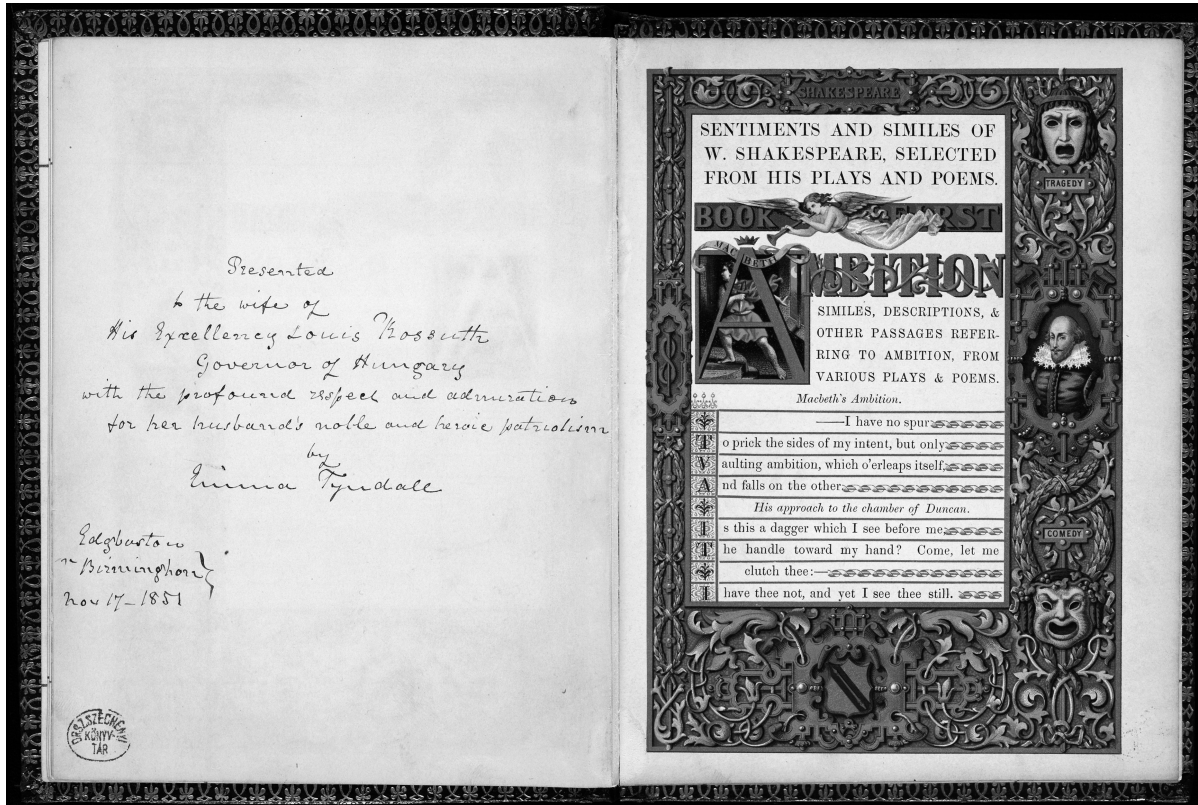 Presented
to the wife of
His Excellency Louis Kossuth
Governor of Hungary
with the profound respect and admiration
for her husband's noble and heroic patriotism
by
Emma Tyndall
Edgbaston
nr Birmingham
Nov 17 - 1851
ORSZ. SZÉCHÉNYI
KÖNYV-
TÁR
SHAKESPEARE
SENTIMENTS AND SIMILES OF
W. SHAKESPEARE, SELECTED
FROM HIS PLAYS AND POEMS.
BOOK FIRST
MACBETH
AMBITION
SIMILES, DESCRIPTIONS, &
OTHER PASSAGES REFER-
RING TO AMBITION, FROM
VARIOUS PLAYS & POEMS.
Macbeth's Ambition.
—I have no spur
To prick the sides of my intent, but only
Vaulting ambition, which o'erleaps itself,
And falls on the other.
His approach to the chamber of Duncan.
Is this a dagger which I see before me,
The handle toward my hand? Come, let me
clutch thee:—
I have thee not, and yet I see thee still.
TRAGEDY
COMEDY